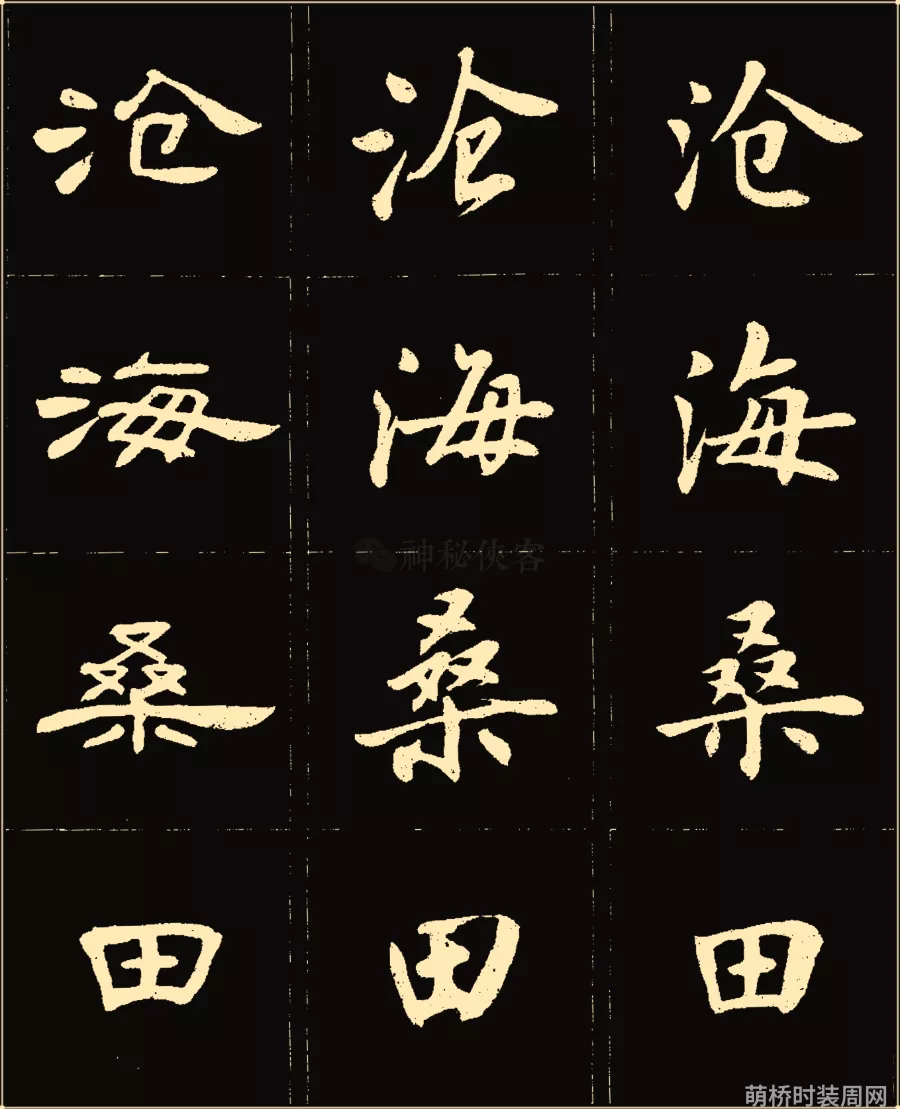 沧 沧 沧
海 海 海
神秘侠客
桑 桑 桑
田 田 田
萌桥时装周网